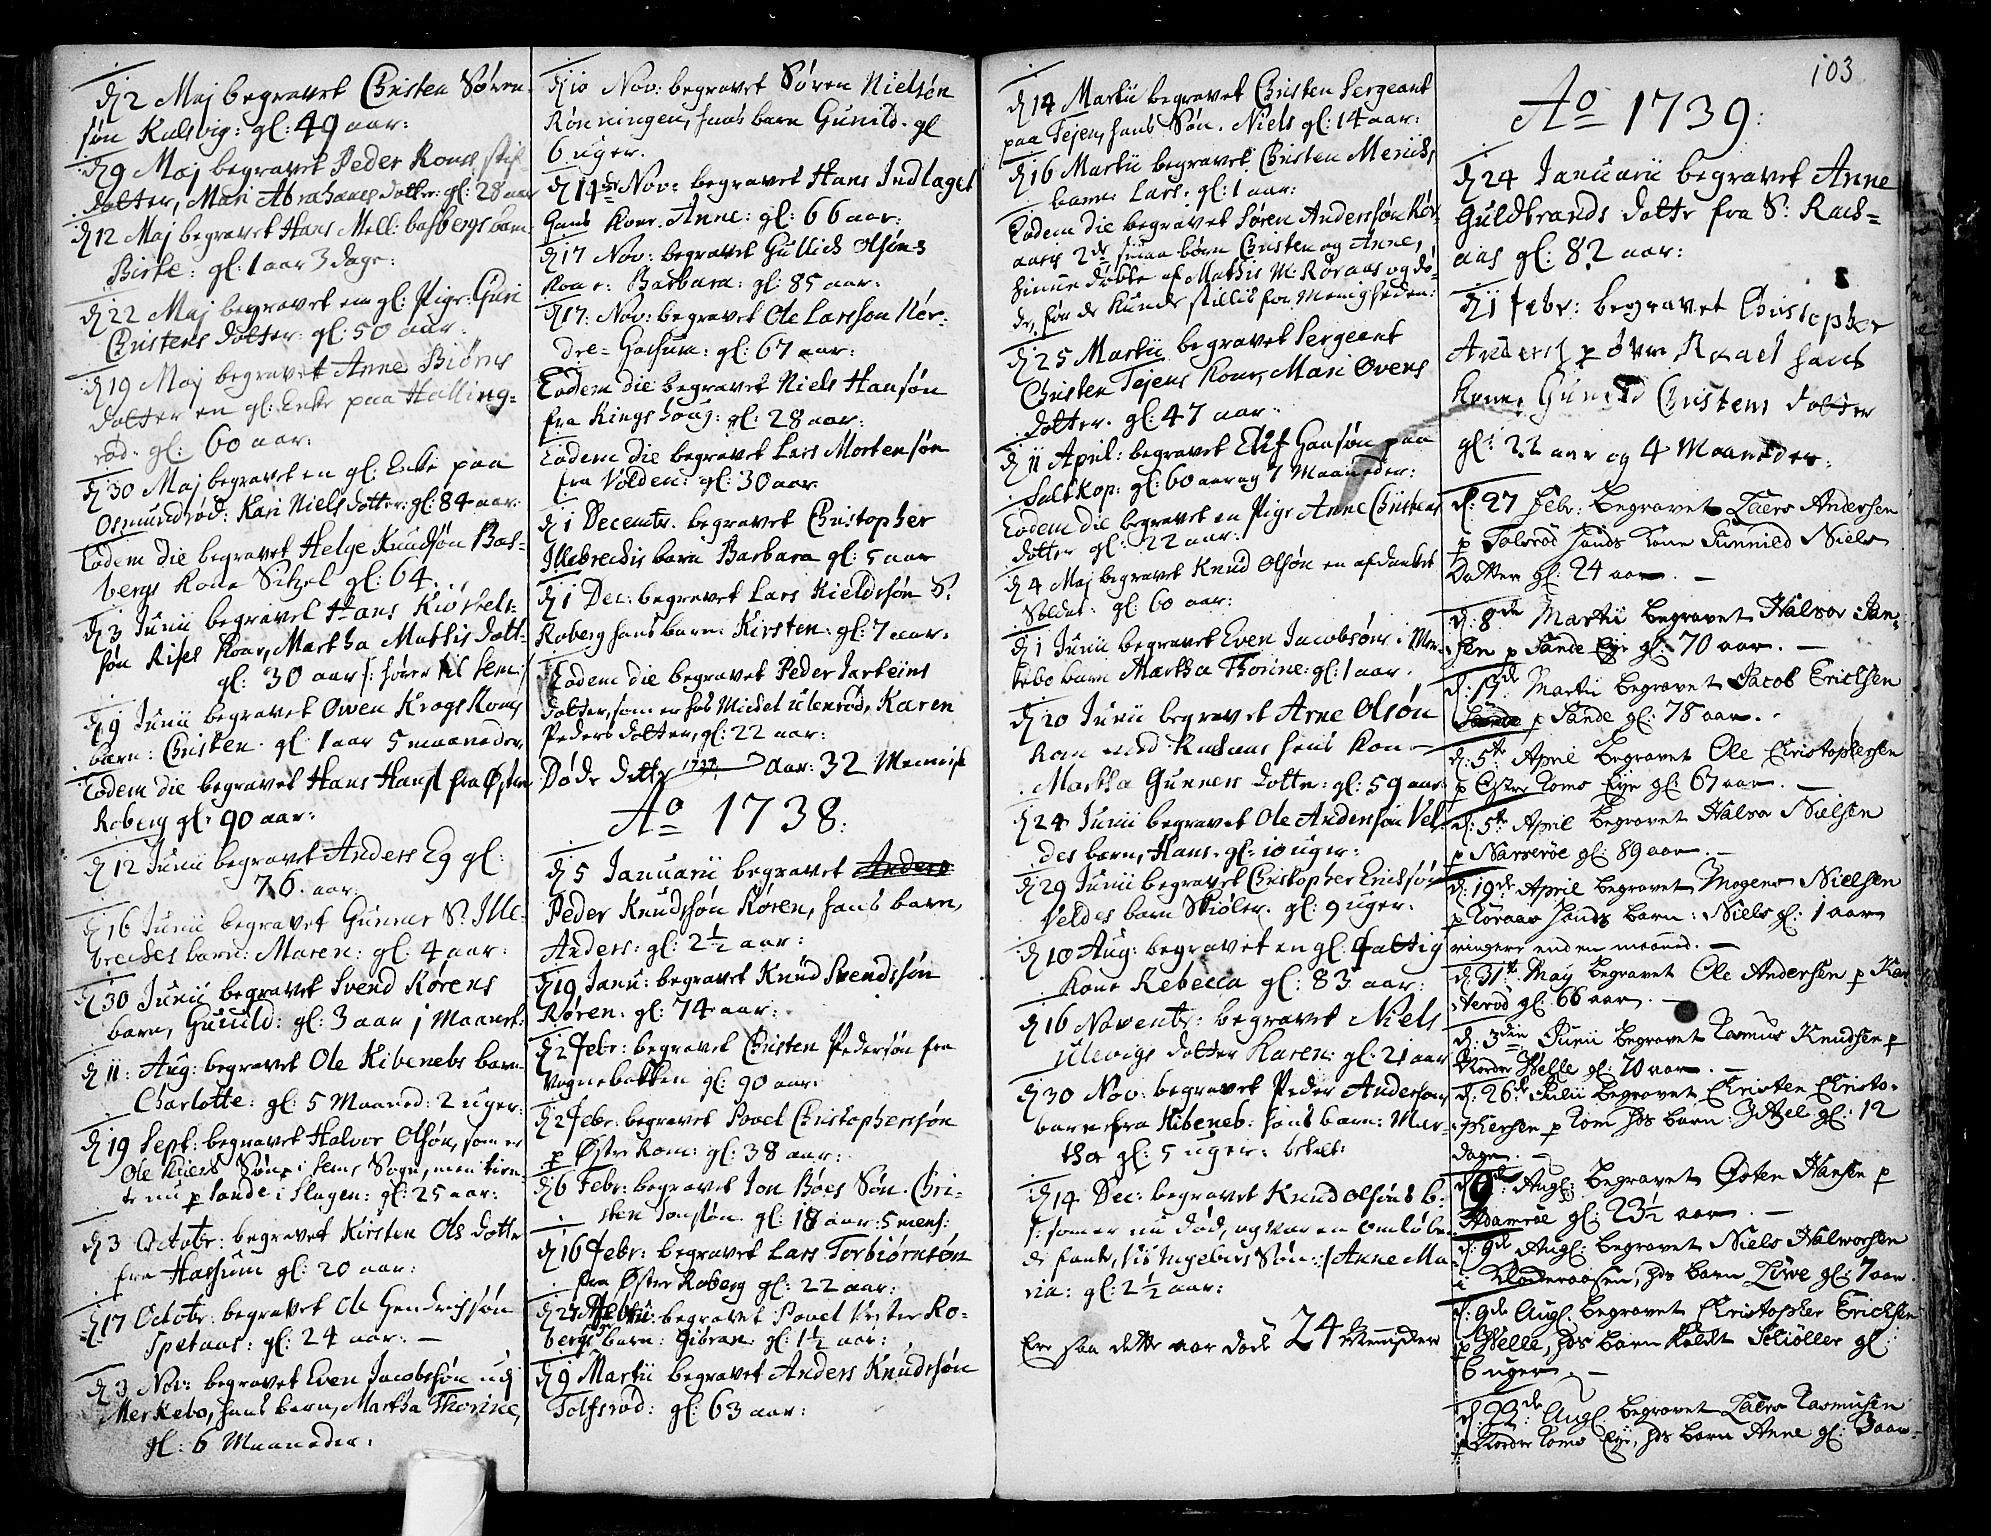 d 2 Maj begravet Christen Søren-
søn Kulsvig: gl: 49 aar:
d 9 Maj begravet Peder Roms stif
dotter, Mari Abrahams dotter: gl: 28 aar
d 12 Maj begravet Hans Mell: basbergs barn
Birte: gl: 1 aar 3 dage:
d 22 Maj begravet en gl: Pige: Guri
Christens dotter: gl: 50 aar:
d 19 Maj begravet Anne Biørns
dotter en gl: Enke paa Halling-
rød: gl: 60 aar:
d 30 Maj begravet en gl: Enke paa
Osmundrød: Kari Niels dotter: gl: 84 aar:
Eodem die begravet Helge Knudsøn Bas-
bergs Kone Sitzel gl: 64.
d 3 Junii begravet Hans Kiøstels-
søn Rises Kone, Martha Mattis dott-
gl: 30 aar /: hører til Sem:/
d 9 Junii begravet Owen Krogs Kones
barn: Christen. gl: 1 aar 5 maaneder
Eodem die begravet Hans Hansl fra Østre
Roberg gl: 90 aar:
d 12 Junii begravet Anders Eg gl:
76. aar.
d 16 Junii begravet Gunnar S. Ille-
breches barn: Maren: gl: 4 aar:
d 30 Junii begravet Svend Rørens
barn, Gunild: gl: 3 aar 1 Maanet:
d 11: Aug: begravet Ole Kibenebs barn
Charlotte: gl: 5 Maaned: 2 uger:
d 19 Sept: begravet Halvor Olsøn, som er
Ole Søn i Sems Sogn, men tien-
te nu p Sande i Slagen: gl: 25 aar:
d 3 Octobr: begravet Kirsten Ols dotter
fra Hassum gl: 20 aar:
d 17 Octobr: begravet Ole Hendrichsøn
Spetaas: gl: 24 aar: —
d 3 Nov: begravet Even Jacobsøn udj
Merkebo, hans barn, Martha Thorine,
gl: 6 Maaneder.
d 10 Nov: begravet Søren Nielsøn
Rønningen, hans barn Gunild. gl
6 uger.
d 14de Nov: begravet Hans Indlaget
Hans Kone. Anne: gl: 66 aar:
d 17 Nov: begravet Gullich Olsøns
Kone: Barbara: gl: 85 aar:
d 17: Nov: begravet Ole Larssøn Nor-
dre-Hassum: gl: 67 aar:
Eodem die begravet Niels Hansøn
fra Ringshoug: gl: 28 aar:
Eodem die begravet Lars Mortensøn
fra Volden: gl: 30 aar
d 1 Decembr. begravet Christopher
Illebrechs barn Barbara gl: 5 aar
d 1 Dec: begravet Lars Kieldssøn S.
Roberg hans barn: Kirsten: gl: 7 aar.
Eodem die begravet Peder
dotter, som er hos Michel Ulenrød, Karen
Peders dotter, gl: 22 aar:
Døde dette 1737 Aar: 32 Mennisk
Ao 1738:
d 5 Januarii begravet Anders
Peder Knudsøn Røren, hans barn,
Anders: gl: 2½ aar:
d 19 Janu: begravet Knud Svendssøn
Røren: gl: 74 aar:
d 2 Febr: begravet Christen Pedersøn fra
Vognebakken gl: 90 aar:
d 2 Febr: begravet Povel Christopherssøn
p Østre Rom: gl: 38 aar:
d 6 Febr: begravet Jon Bøes Søn. Chri-
sten Jonsøn. gl: 18 aar: 5 mens:
d 16 Febr: begravet Lars Torbiørnsøn
fra Østre Roberg gl: 22 aar:
d 27 Febr: begravet Povel Vester Ro-
bergs barn: Gibran: gl: 1½ aar:
d 9 Martii begravet Anders Knudsøn
Tolfsrød: gl: 63 aar:
d 14 Martii begravet Christen Sergeant
paa Tejen, hans Søn. Niels gl: 14 aar:
d 16 Martii begravet Christen
barn: Lars: gl: 1 aar:
Eodem die begravet Søren Anderssøn Rør-
aasis 2de smaa børn Christen og Anne,
hiemme døbte af Mathis M: Røraas og dø-
de, før de kunde stillis for Menigheden:
d 25 Martii begravet Sergeant
Christen Tejens Kone, Mari Ovens
dotter. gl: 47 aar:
d 11 April: begravet Elif Hansøn paa
Saltkop: gl: 60 aar og 7 Maaneder:
Eodem die begravet en Pige Anne Christens
dotter gl: 22 aar:
d 4 Maj begravet Knud Olsøn en afdanket
Soldat: gl: 60 aar:
d 1 Junii begravet Even Jacobsøns i Mer-
kebo barn Martha Thorine: gl: 1 aar.
d 20 Junii begravet Arne Olsøn
Rom hans Kone
Martha Gunners dotter: gl: 59 aar
d 24 Junii begravet Ole Andersøn Vel-
des barn, Hans. gl: 10 uger:
d 29 Junii begravet Christopher Erichsøn
Veldes barn Skiøler. gl: 9 uger:
d 10 Aug: begravet en gl: fattig
Kone Rebecca gl: 83 aar:
d 16 Novembr: begravet Niels
Ulevigs dotter Karen: gl: 21 aar
d 30 Nov: begravet Peder Anderssøns
barn fra Kibeneb: hans barn: Mar-
tha gl: 5 uger: betalt:
d 14 Dec: begravet Knud Olsøns b:
/: som er nu død, og var en omløben-
de fante, Sis Ingebrets Søn :/ Anne Ma-
ria: gl: 2½ aar:
Er saa dette aar døde 24 Mennisker
103
Ao 1739:
d 24 Januarii begravet Anne
Guldbrands dotter fra S: Rach-
aas gl: 82 aar:
d 1 Febr: begravet Christopher
Anders p Øvre Raael hans
Kone, Gunild Christens dotter
gl: 22 aar og 4 Maaneder:
d: 27 Febr: begravet Laers Andersen
p Tolsrød hands Kone Gunnild Niels
Datter gl: 24 aar. —
d: 8de Martii begravet Halvor Jan-
sen p Sande Eye gl: 70 aar. —
d: 15de Martii begravet Jacob Erichsen
Sande p Sande gl: 78 aar. -
d: 5te April begravet Ole Christophersen
p Østre Roms Eye gl: 67 aar. —
d: 5te April begravet Halvor Nielsen
p Narverøe gl: 89 aar. —
d: 19de April begravet Mogens Nielsen
p Røraas hands barn: Niels gl: 1 aar
ringere end en maaned. —
d: 31te May begravet Ole Andersen p Kar-
sterød gl: 66 aar. —
d: 3die Junii begravet Rasmus Knudsen p
Nordre Welle gl: 70 aar. —
d: 26de Julii begravet Christen Christo-
phersen p Rom hds barn Zitzel gl: 12
dage. —
d 9de: Augs: begravet Østen Hansen p
Adamrøe gl: 23½ aar. —
d: 9de Augl: begravet Niels Halvorsen
i hds barn Live gl: 7 aar.
d: 9de Augl: begravet Christopher Erichsen
p Welle, hds barn Kaldt Schiøller gl:
6 uger. —
d: 23de: Augl: begravet Laers Rasmusen
p Nordre Roms Eye, hds barn Anne gl: 3 aar.